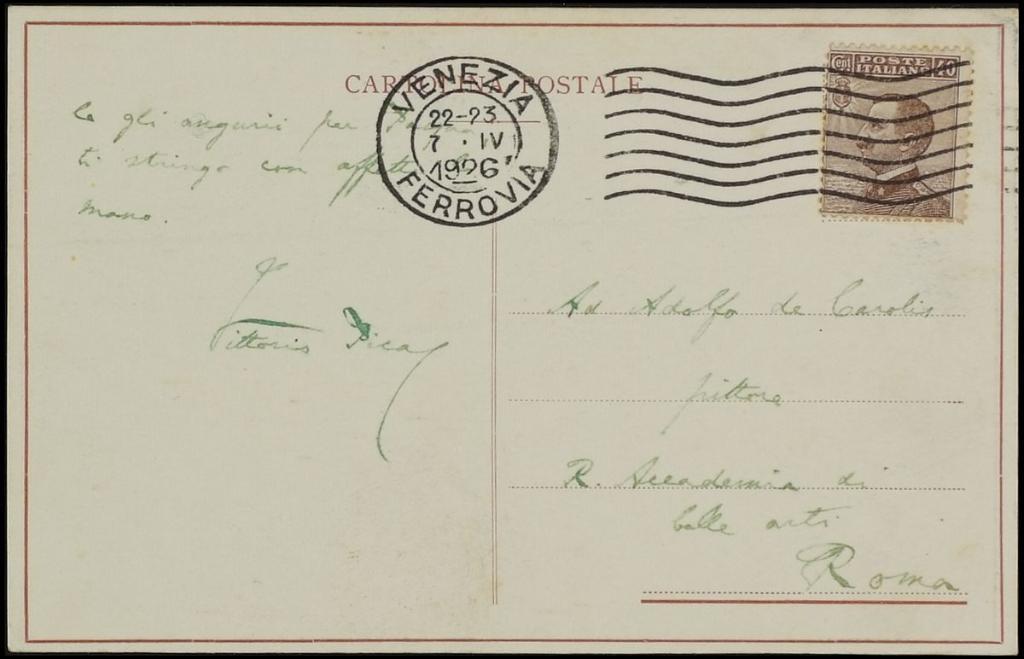 CARTOLINA POSTALE
VENEZIA
22-23
7 · IV
1926
FERROVIA
Cent 40
POSTE
ITALIANE
gli auguri per
ti stringo con affetto la
mano.
Vittorio Pica
Ad Adolfo de Carolis
pittore
R. Accademia di
belle arti
Roma